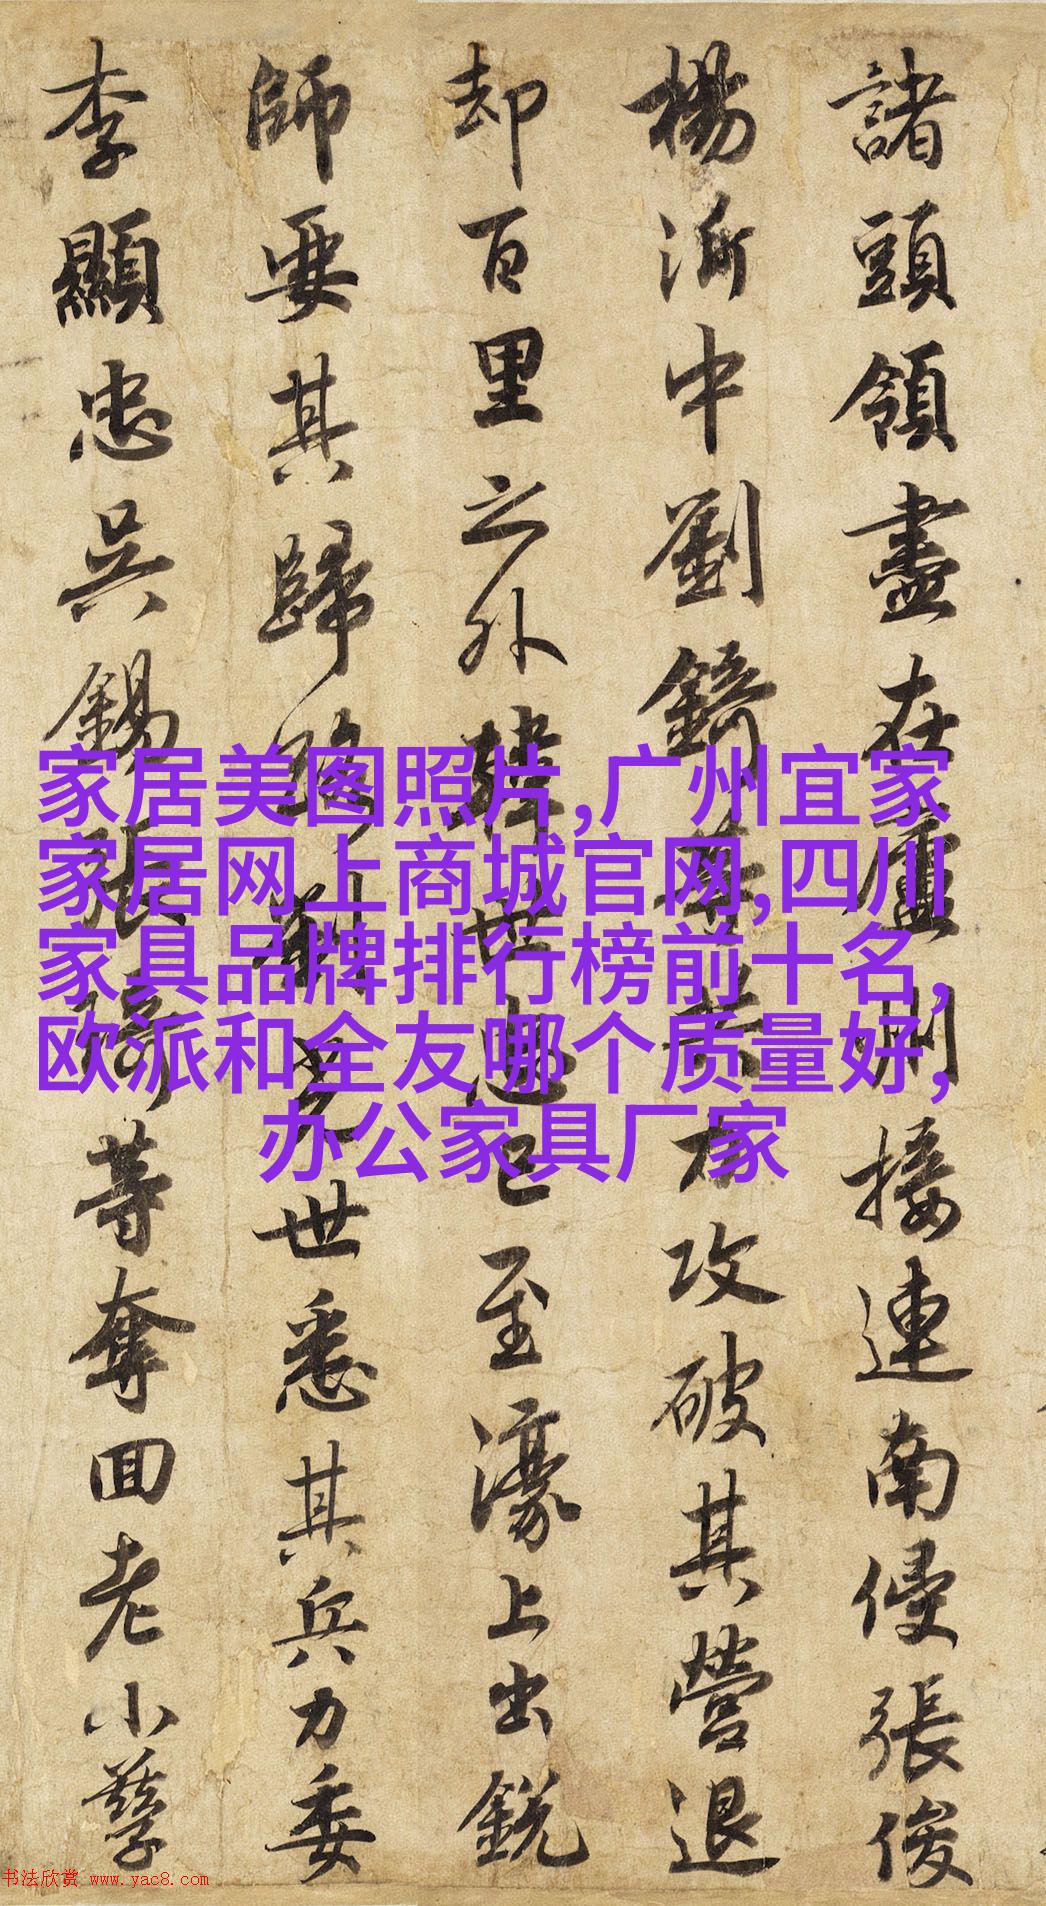 諸頭領盡在廬州接連南侵張俊
楊沂中劉錡等共力攻破其營退
却百里之外韓世忠已至濠上出銳
師要其歸路劉光世悉其兵力委
李顯忠吳錫張琦等奪回老小孳
家居美图照片,广州宜家
家居网上商城官网,四川
家具品牌排行榜前十名,
欧派和全友哪个质量好,
办公家具厂家
书法欣赏 www.yac8.com